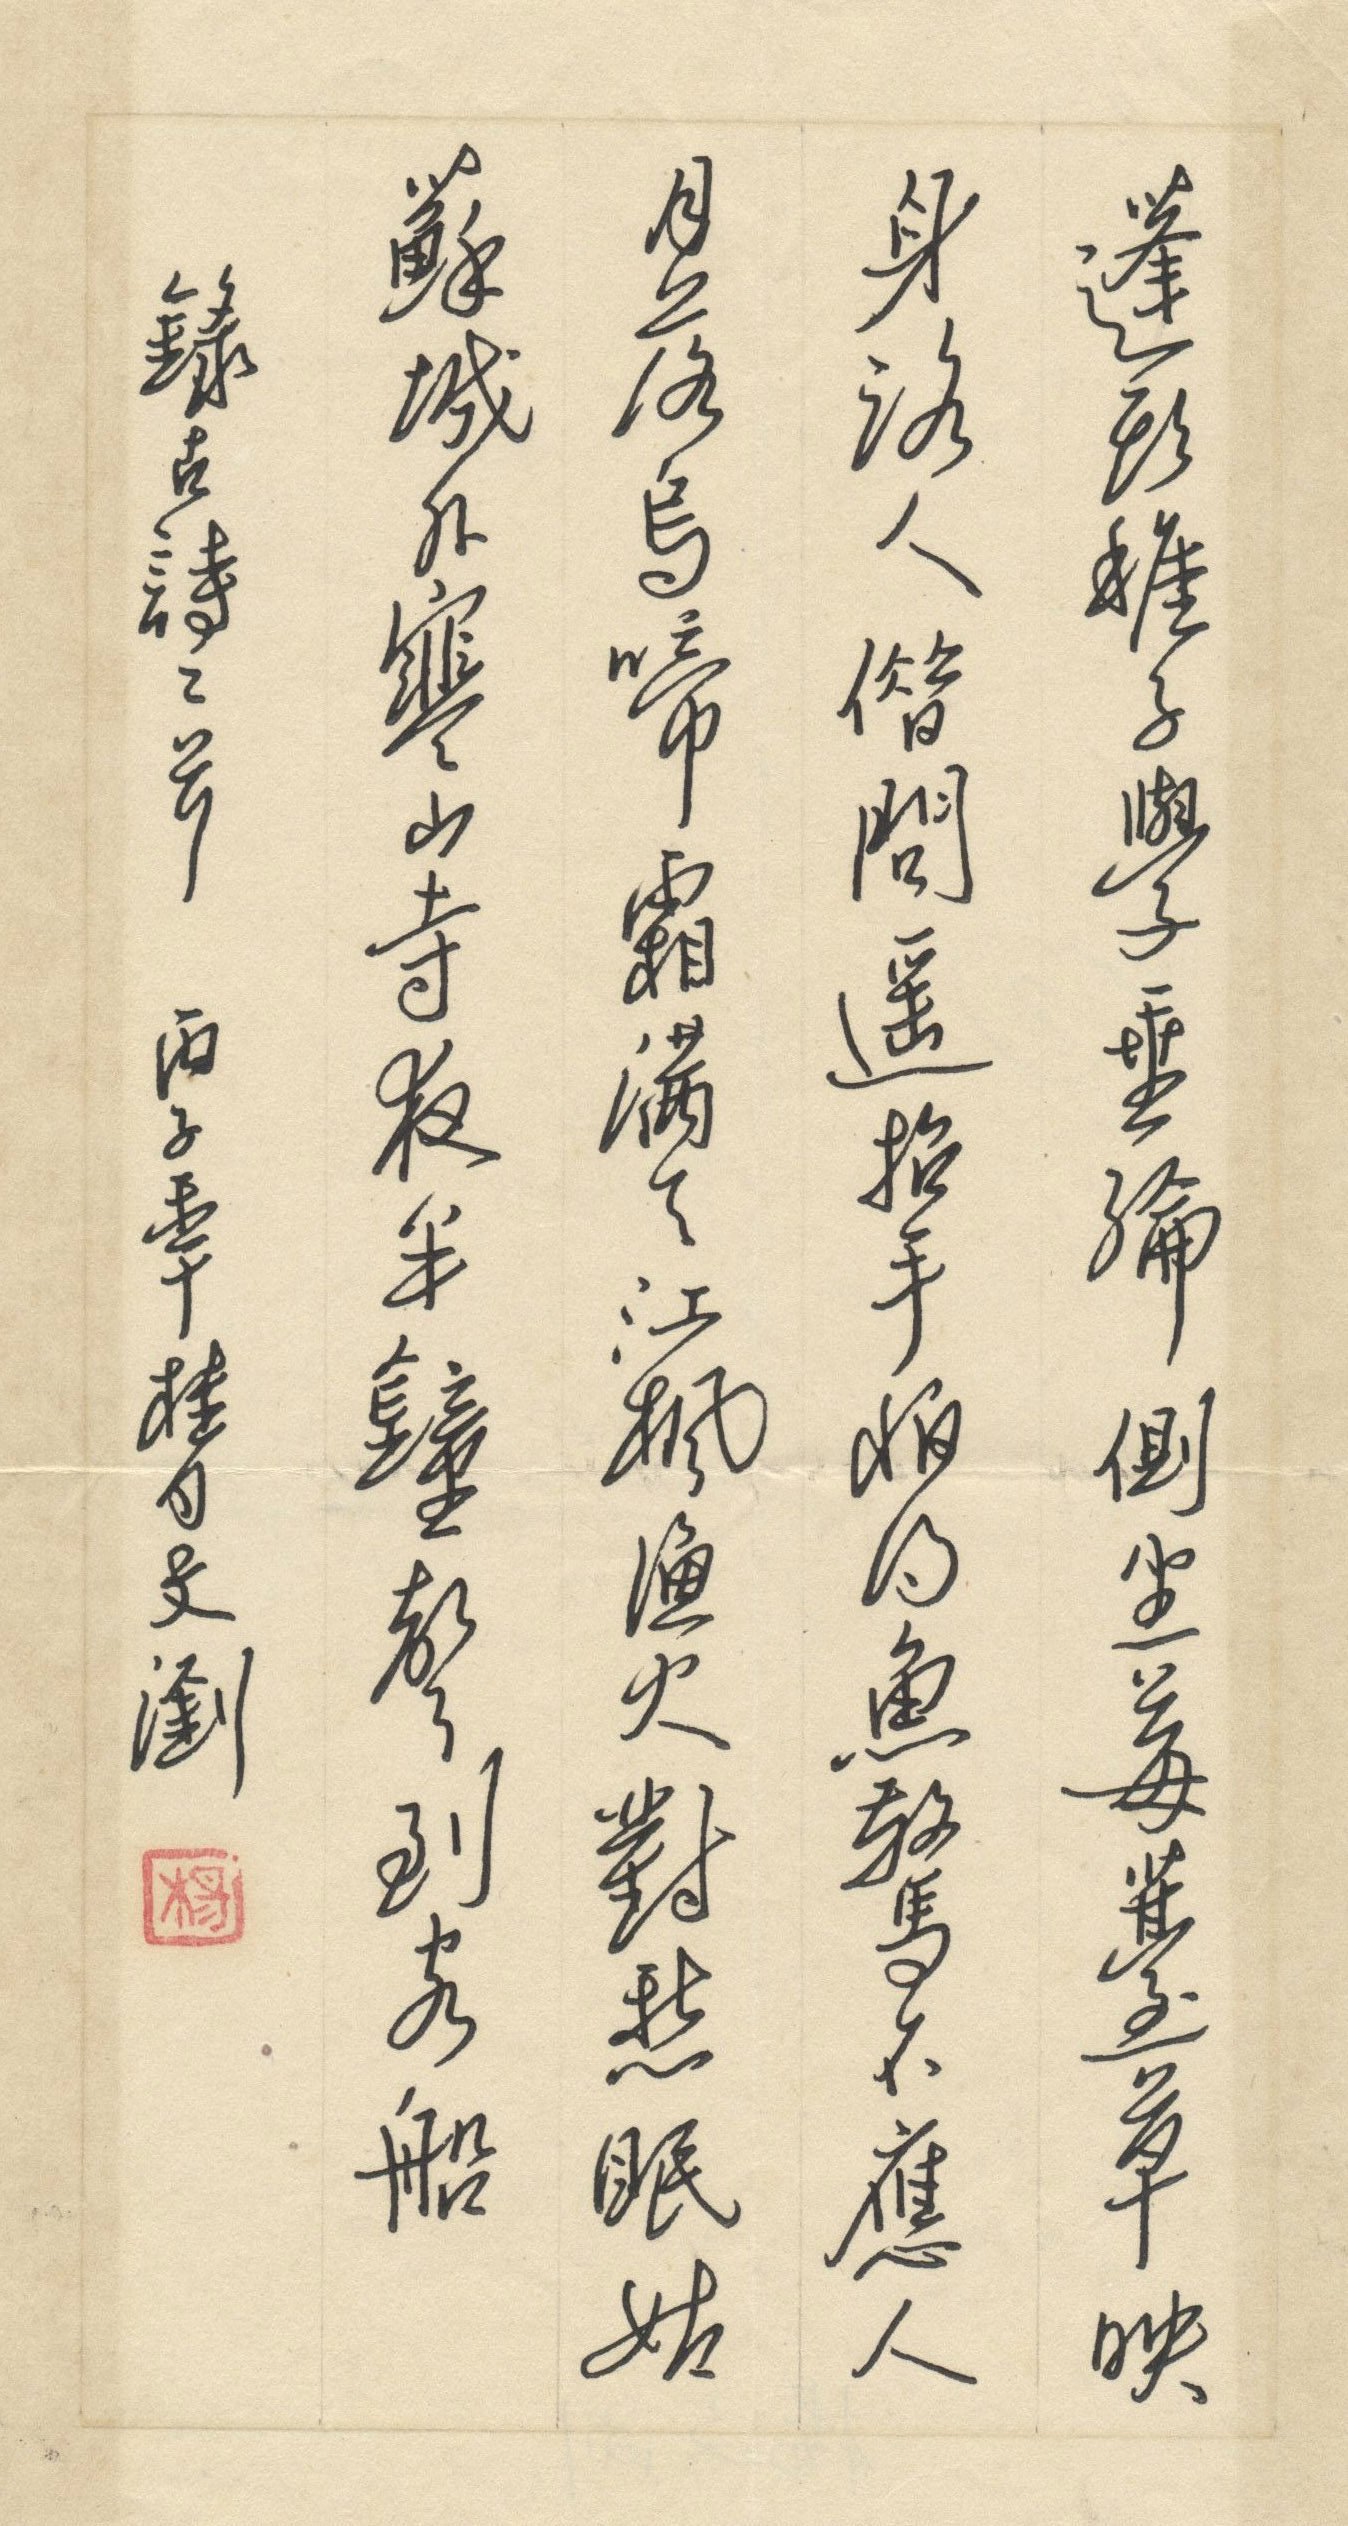 蓬頭稚子學垂綸側坐莓薹草映
身路人借問遥招手怕得魚驚不應人
月落烏啼霜滿天江楓漁火對愁眠姑
蘇城外寒山寺夜半鐘聲到客船
錄古詩二首 丙子年桂月文瀏
楊